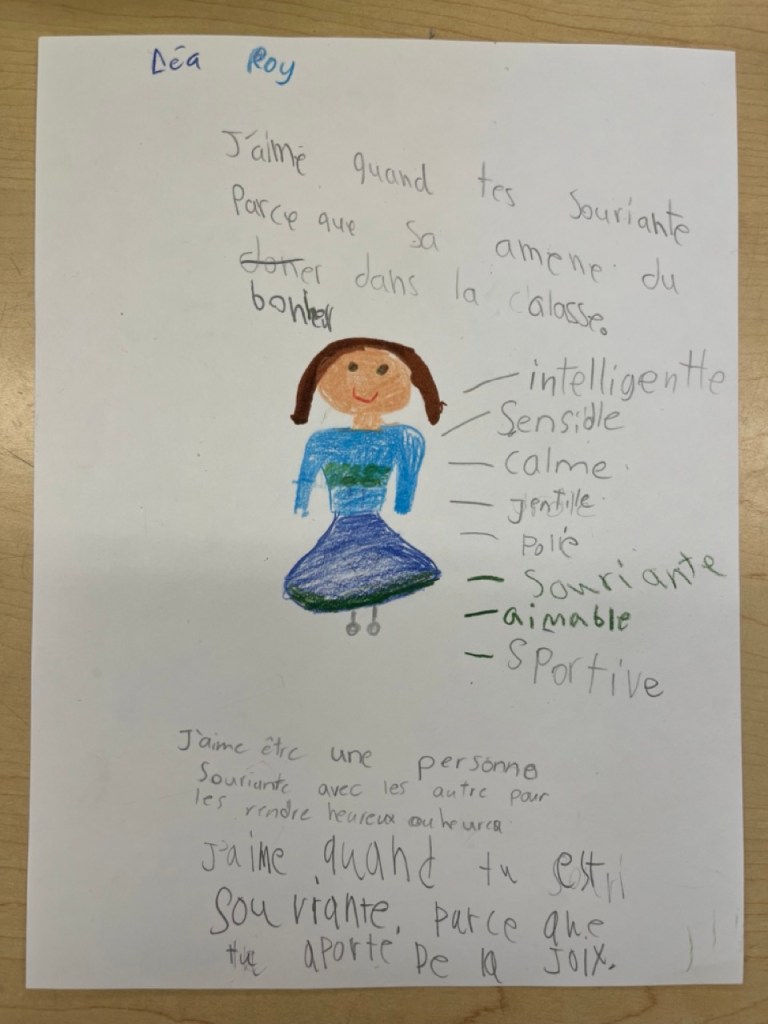 Léa Roy
J'aime quand tes souriante
Parce que sa amene du
doner dans la calasse.
bonheu
intelligentte
Sensible
calme
jentille
polie
Souriante
aimable
Sportive
J'aime être une personne
Souriante avec les autre pour
les rendre heureux ou heurea
J'aime quand tu est
Souriante. parce que
tue aporte De la Joix.